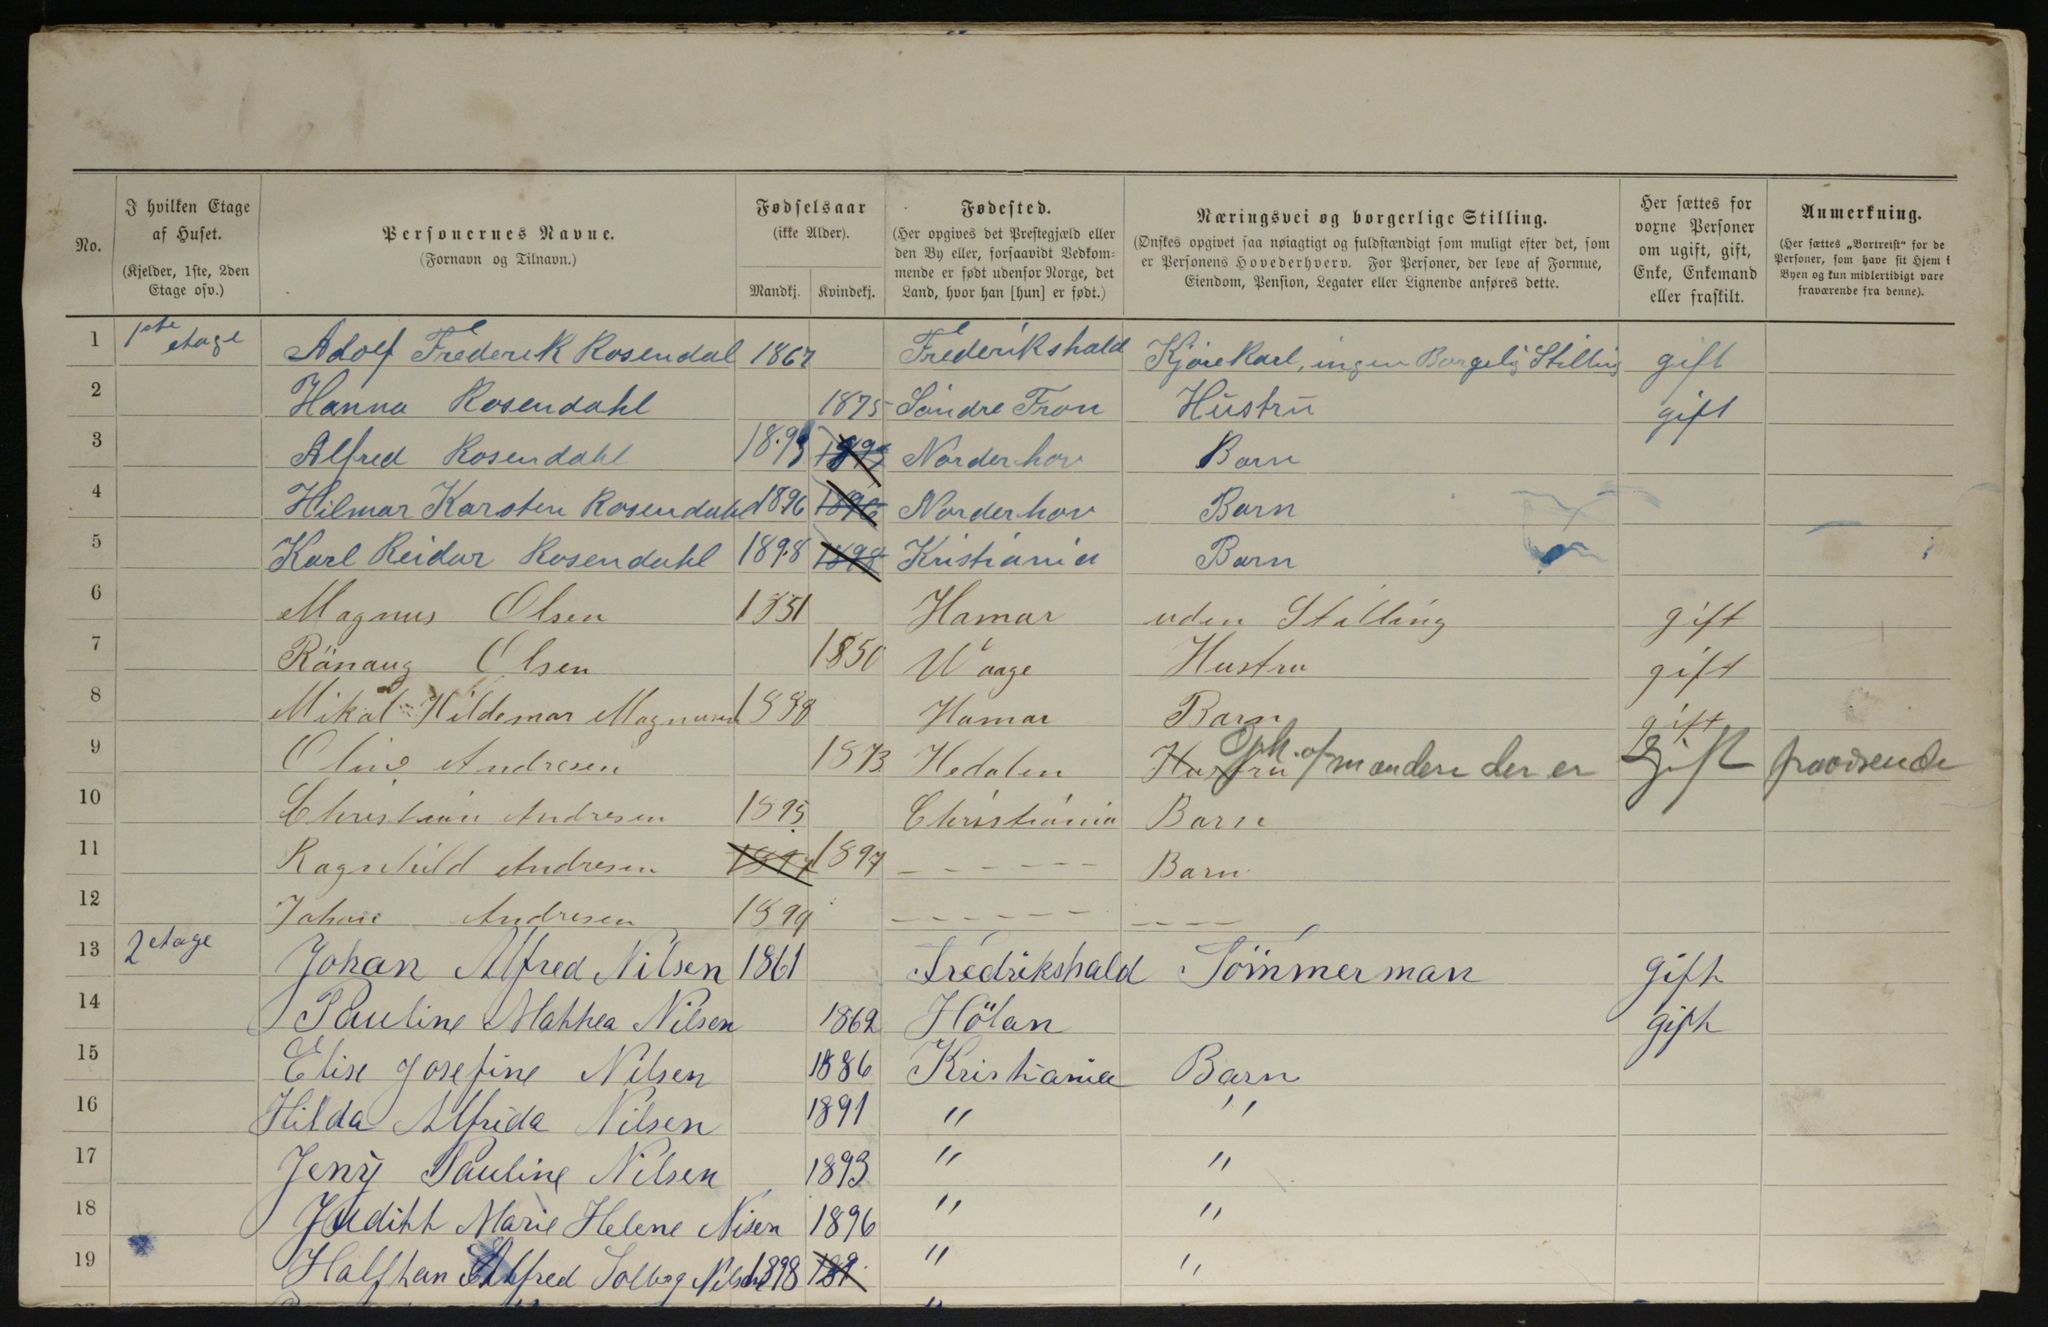 No.
I hvilken Etage
af Huset.
(Kjelder, 1ste, 2den
Etage osv.)
Personernes Navne.
(Fornavn og Tilnavn.)
Fødselsaar
(ikke Alder).
Mandkj. Kvindekj.
Fødested.
(Her opgives det Prestegjæld eller
den By eller, forsaavidt Vedkom-
mende er født udenfor Norge, det
Land, hvor han [hun] er født.)
Næringsvei og borgerlige Stilling.
(Ønskes opgivet saa nøiagtigt og fuldstændigt som muligt efter det, som
er Personens Hovederhverv. For Personer, der leve af Formue,
Eiendom, Pension, Legater eller Lignende anføres dette.
Her sættes for
voxne Personer
om ugift, gift,
Enke, Enkemand
eller fraskilt.
Anmerkning.
(Her sættes „Bortreist“ for de
Personer, som have sit Hjem i
Byen og kun midlertidigt vare
fraværende fra denne).
1 1ste etage Adolf Frederik Rosendal 1867 Frederikshald Kjørekarl, ingen Borgelig Stilling gift
2 Hanna Rosendahl 1875 Söndre Fron Hustru gift
3 Alfred Rosendahl 1893 Norderhov Barn
4 Hilmar Karsten Rosendahl 1896 1896 Norderhov Barn
5 Karl Reidar Rosendahl 1898 1898 Kristiania Barn
6 Magnus Olsen 1851 Hamar uden Stilling gift
7 Rönaug Olsen 1850 Waage Hustru gift
8 Mikal Hildemar Magnusen 1888 Hamar Barn gift
9 Oline Andresen 1873 Hedalen Hustru af manden der er Gift fraværende
10 Christian Andresen 1895 Christiania Barn
11 Ragnhild Andresen 1897 1897 – – – – – Barn
12 Johan Andresen 1899 – – – – – – – – – –
13 2 etage Johan Alfred Nilsen 1861 Fredrikshald Tömmerman gift
14 Pauline Mathea Nilsen 1862 Hölan gift
15 Elise Josefine Nilsen 1886 Kristiania Barn
16 Hilda Alfrida Nilsen 1891 " "
17 Jeny Pauline Nilsen 1893 " "
18 Judith Marie Helene Nisen 1896 " "
19 Halfhan Alfred Solberg Nilsen 1898 189 " "